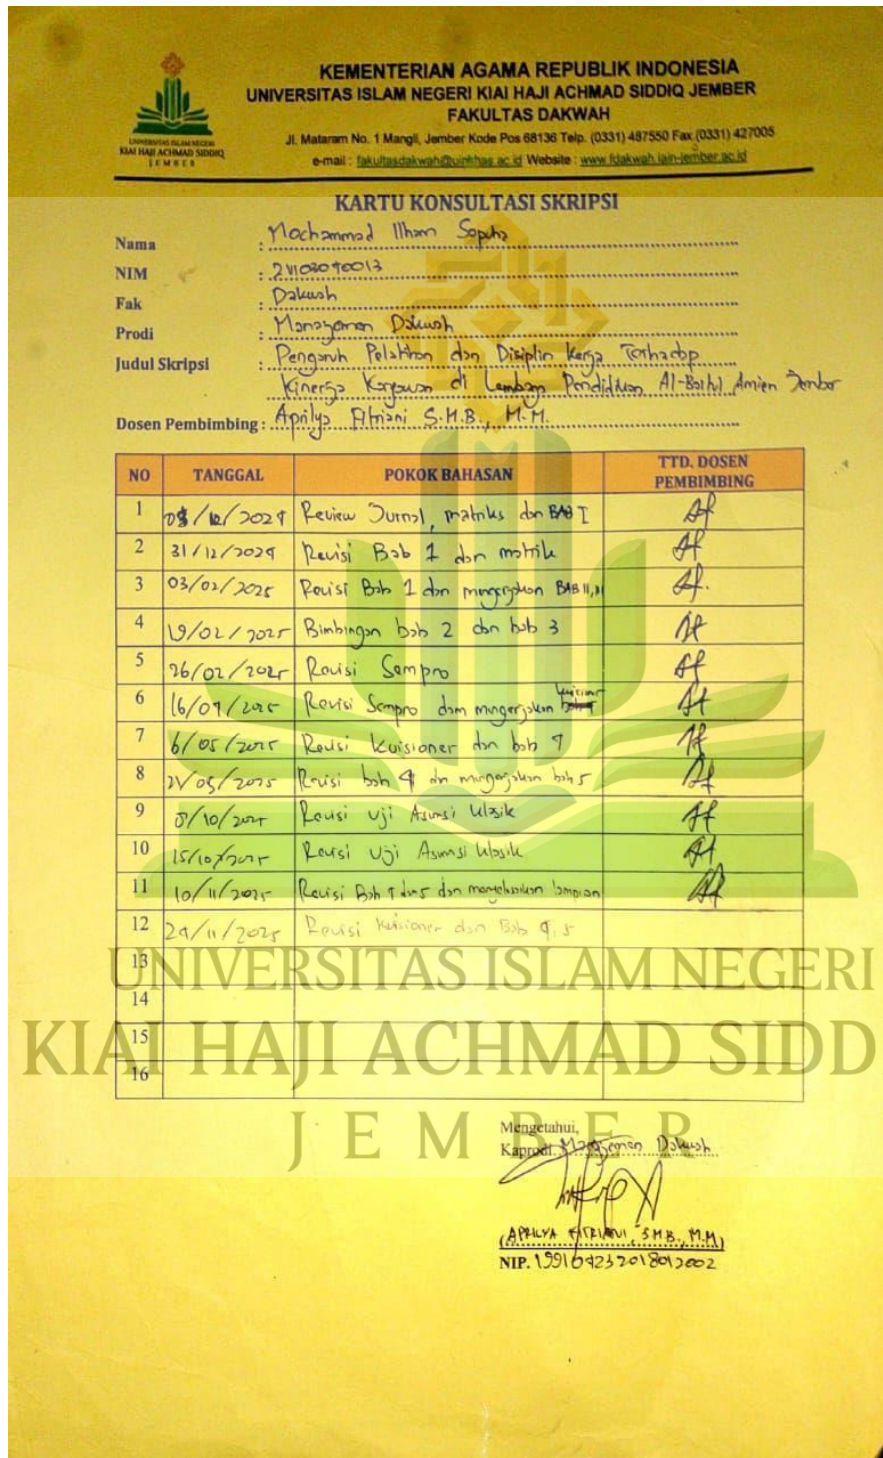 KEMENTERIAN AGAMA REPUBLIK INDONESIA
UNIVERSITAS ISLAM NEGERI KIAI HAJI ACHMAD SIDDIQ JEMBER
FAKULTAS DAKWAH
Jl. Mataram No. 1 Mangli, Jember Kode Pos 68136 Telp. (0331) 487550 Fax (0331) 427005
e-mail : fakultasdakwah@uinkhas.ac.id Website : www.fdakwah.iain-jember.ac.id
UNIVERSITAS ISLAM NEGERI
KIAI HAJI ACHMAD SIDDIQ
JEMBER
KARTU KONSULTASI SKRIPSI
Nama : Mochammad Ilham Saputra
NIM :
Fak : Dakwah
Prodi : Manajemen Dakwah
Judul Skripsi : Pengaruh Pelatihan dan Disiplin Kerja Terhadap
Kinerja Karyawan di Lembaga Pendidikan Al-Baitul Amien Jember
Dosen Pembimbing : Aprilya Fitriani S.M.B., M.M.
NO TANGGAL POKOK BAHASAN TTD. DOSEN PEMBIMBING
1 Review Jurnal, matriks dan BAB I
2 31/12/2024 Revisi Bab 1 dan matrik
3 03/02/2025 Revisi Bab 1 dan mengerjakan BAB II,
4 19/02/2025 Bimbingan bab 2 dan bab 3
5 26/02/2025 Revisi Sempro
6 16/04/2025 Revisi Sempro dam mengerjakan kuisioner
7 6/05/2025 Revisi Kuisioner dan bab 4
8 Revisi bab 4 dn mengerjakan bab 5
9 Revisi Uji Asumsi klasik
10 15/10/2025 Revisi Uji Asumsi klasik
11 10/11/2025 Revisi Bab 4 dan 5 dan menyelesaikan lampiran
12 24/11/2025 Revisi kuisioner dan Bab 4,5
13
14
15
16
UNIVERSITAS ISLAM NEGERI
KIAI HAJI ACHMAD SIDD
JEMBER
Mengetahui,
Kaprodi. Manajemen Dakwah
(APRILYA FITRIANI, S.M.B., M.M)
NIP.